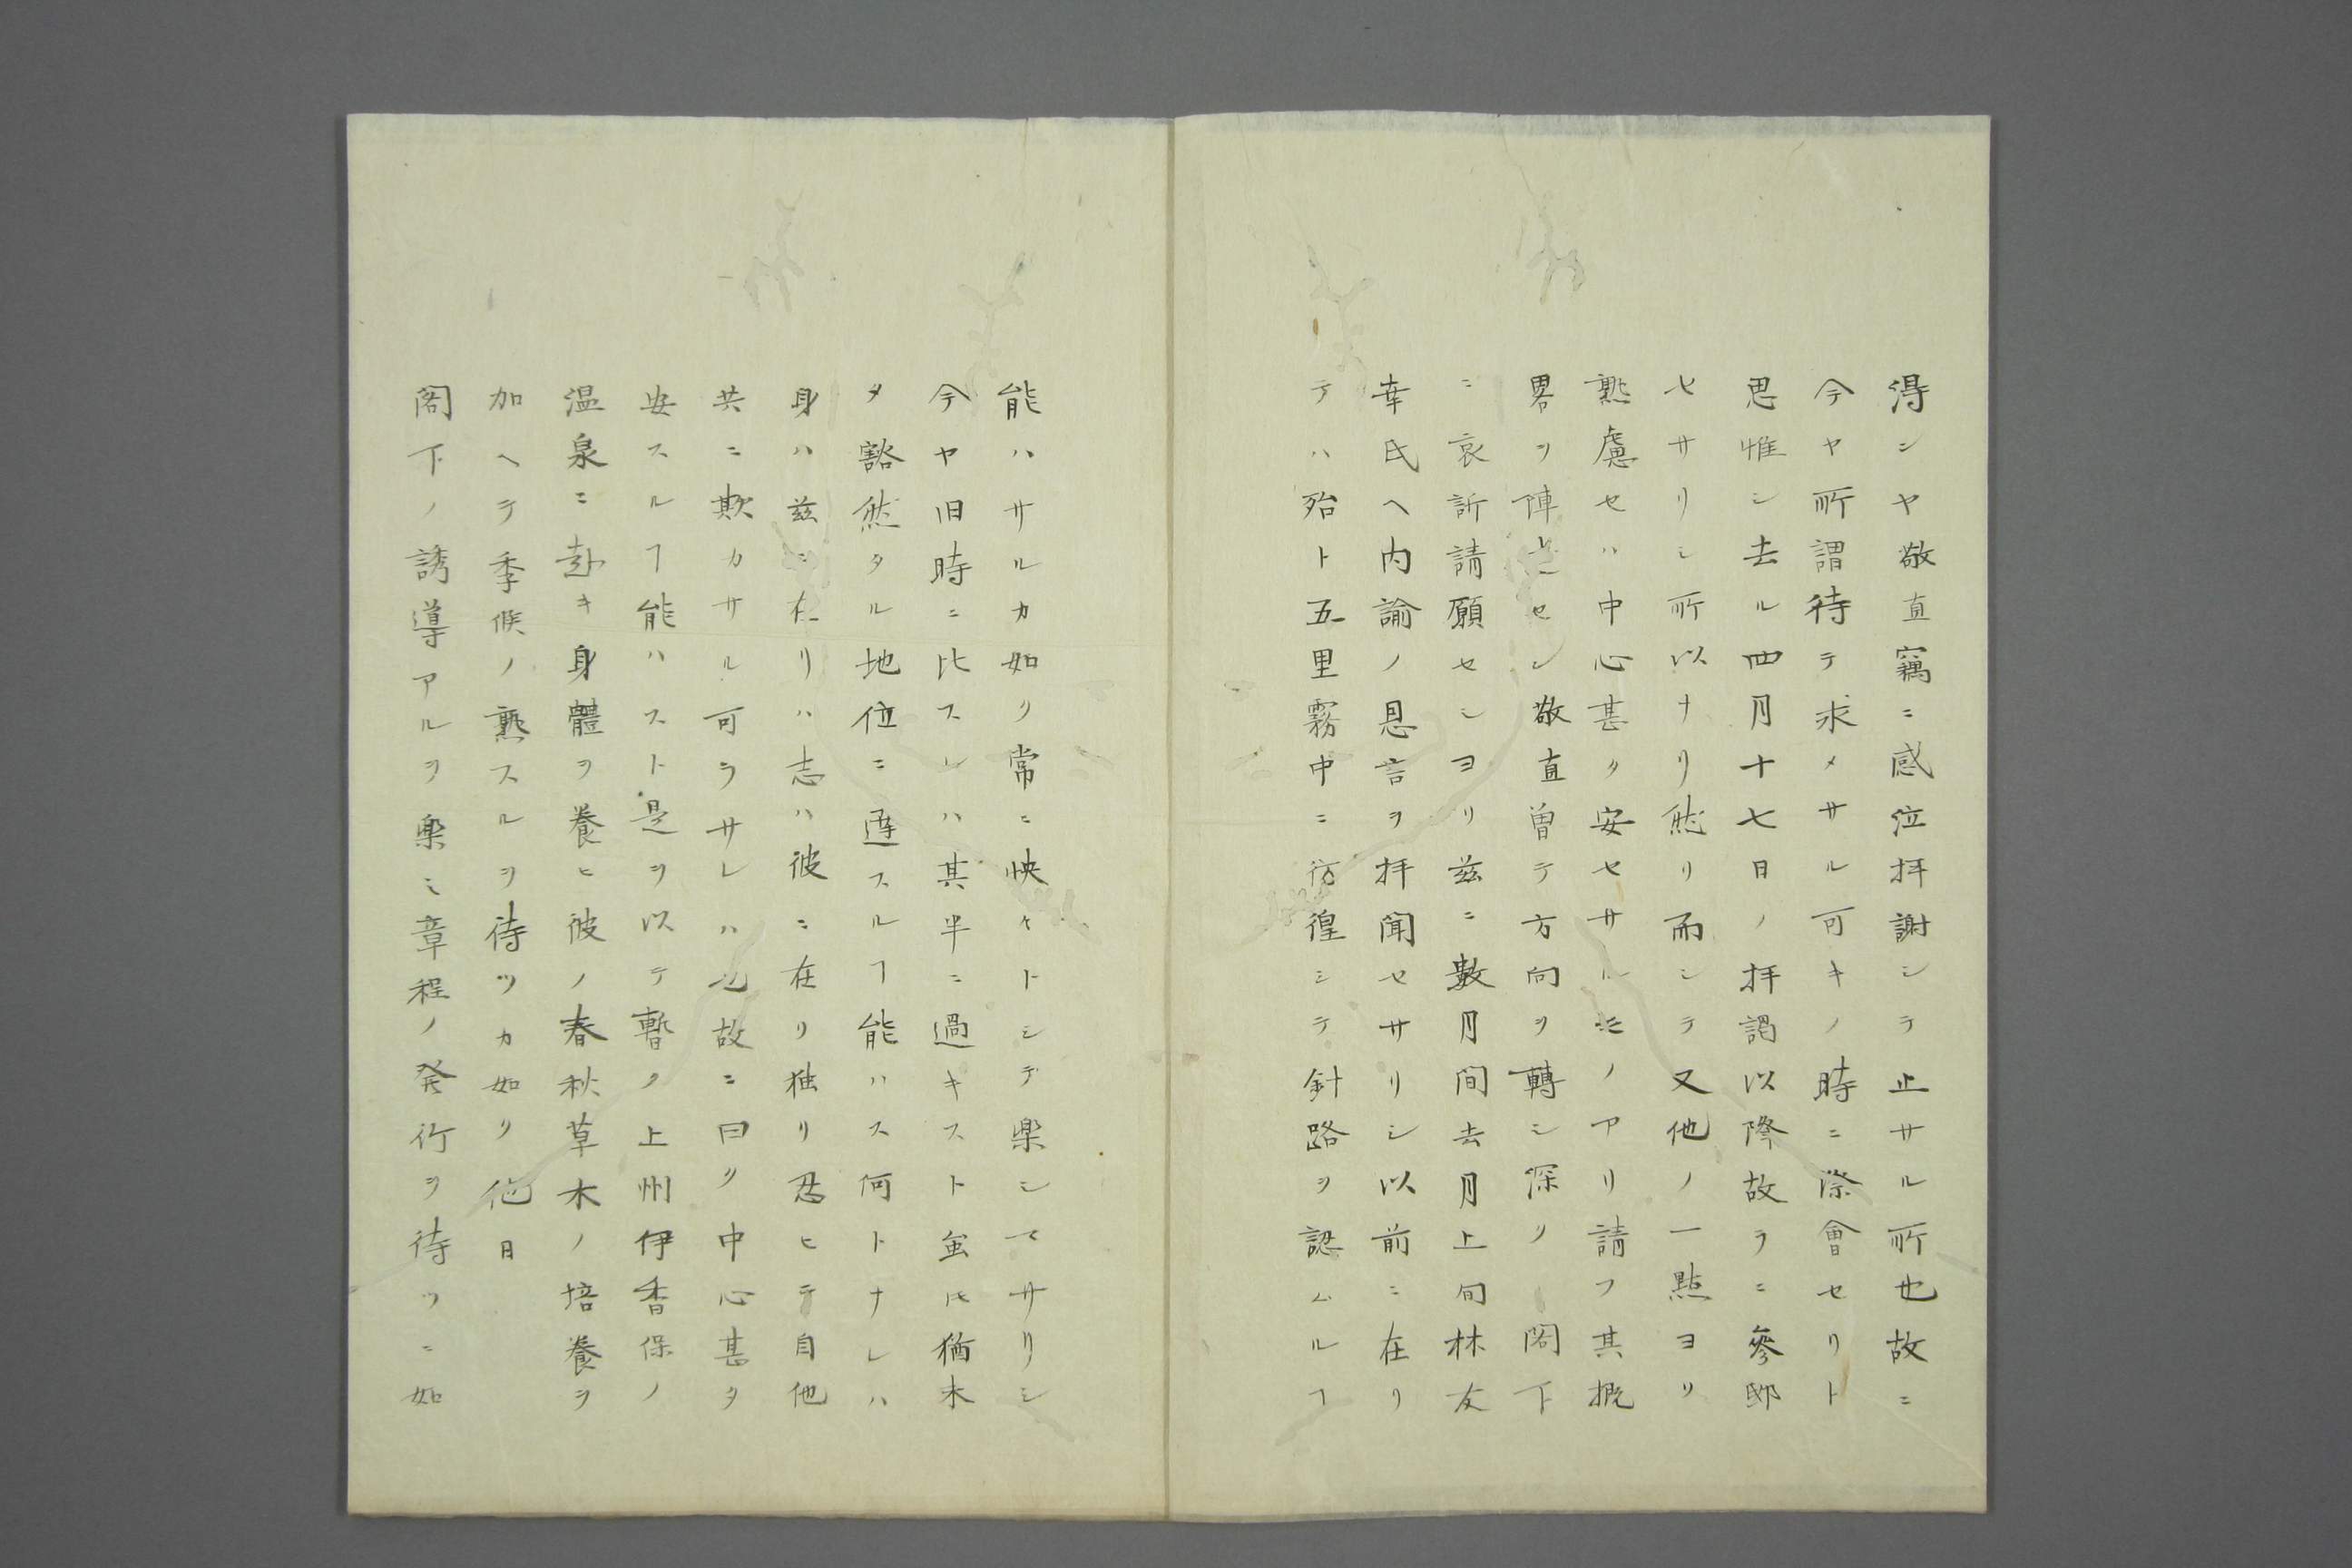 得シヤ敬直竊ニ感泣拝謝シテ止サル所也故ニ
今ヤ所謂待テ求メサル可キノ時ニ際會セリト
思惟シ去ル四月十七日ノ拝謁以降故ラニ參邸
セサリシ所以ナリ然リ而シテ又他ノ一點ヨリ
熟慮セハ中心甚タ安セサルモノアリ請フ其概
畧ヲ陳述セン敬直曽テ方向ヲ轉シ深ク閣下
ニ哀訴請願セシヨリ茲ニ數月間去月上旬林友
幸氏ヘ内諭ノ恩言ヲ拝聞セサリシ以前ニ在リ
テハ殆ト五里霧中ニ彷徨シテ針路ヲ認ムルヿ
能ハサルカ如ク常ニ怏々トシテ楽シマサリシ
今ヤ旧時ニ比スレハ其半ニ過キスト虽𪜈猶未
タ豁然タル地位ニ達スルヿ能ハス何トナレハ
身ハ茲ニ在リハ志ハ彼ニ在リ独リ忍ヒテ自他
共ニ欺カサル可ラサレハ也故ニ曰ク中心甚タ
安スルヿ能ハスト是ヲ以テ暫ク上州伊香保ノ
温泉ニ赴キ身體ヲ養ヒ彼ノ春秋草木ノ培養ヲ
加ヘテ季候ノ熟スルヲ待ツカ如ク他日
閣下ノ誘導アルヲ楽ミ章程ノ発行ヲ待ツニ如